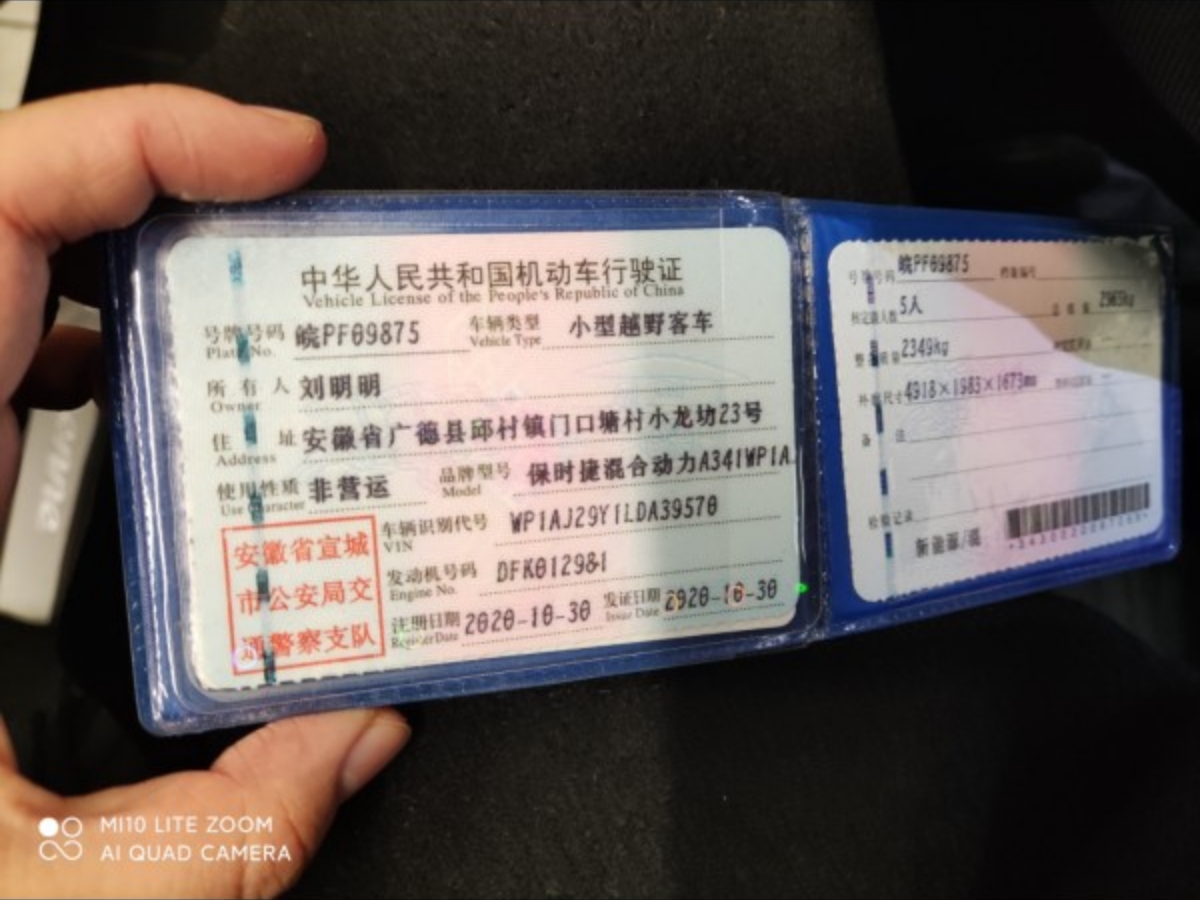 中华人民共和国机动车行驶证
Vehicle License of the People's Republic of China
号牌号码 皖PF09875 车辆类型 小型越野客车
Plate No. Vehicle Type
所有人 刘明明
Owner
住址 安徽省广德县邱村镇门口塘村小龙坊23号
Address
使用性质 非营运 品牌型号 保时捷混合动力A341WP1A
Use Character Model
车辆识别代号 WP1AJ29Y1LDA39570
VIN
发动机号码 DFK012981
Engine No.
注册日期 2020-10-30 发证日期 2020-10-30
Register Date Issue Date
安徽省宣城
市公安局交
通警察支队
号牌号码 皖PF09875 档案编号
核定载人数 5人 总质量
整备质量 2349kg
外廓尺寸 4918×1983×1673mm
备注
检验记录
MI10 LITE ZOOM
AI QUAD CAMERA